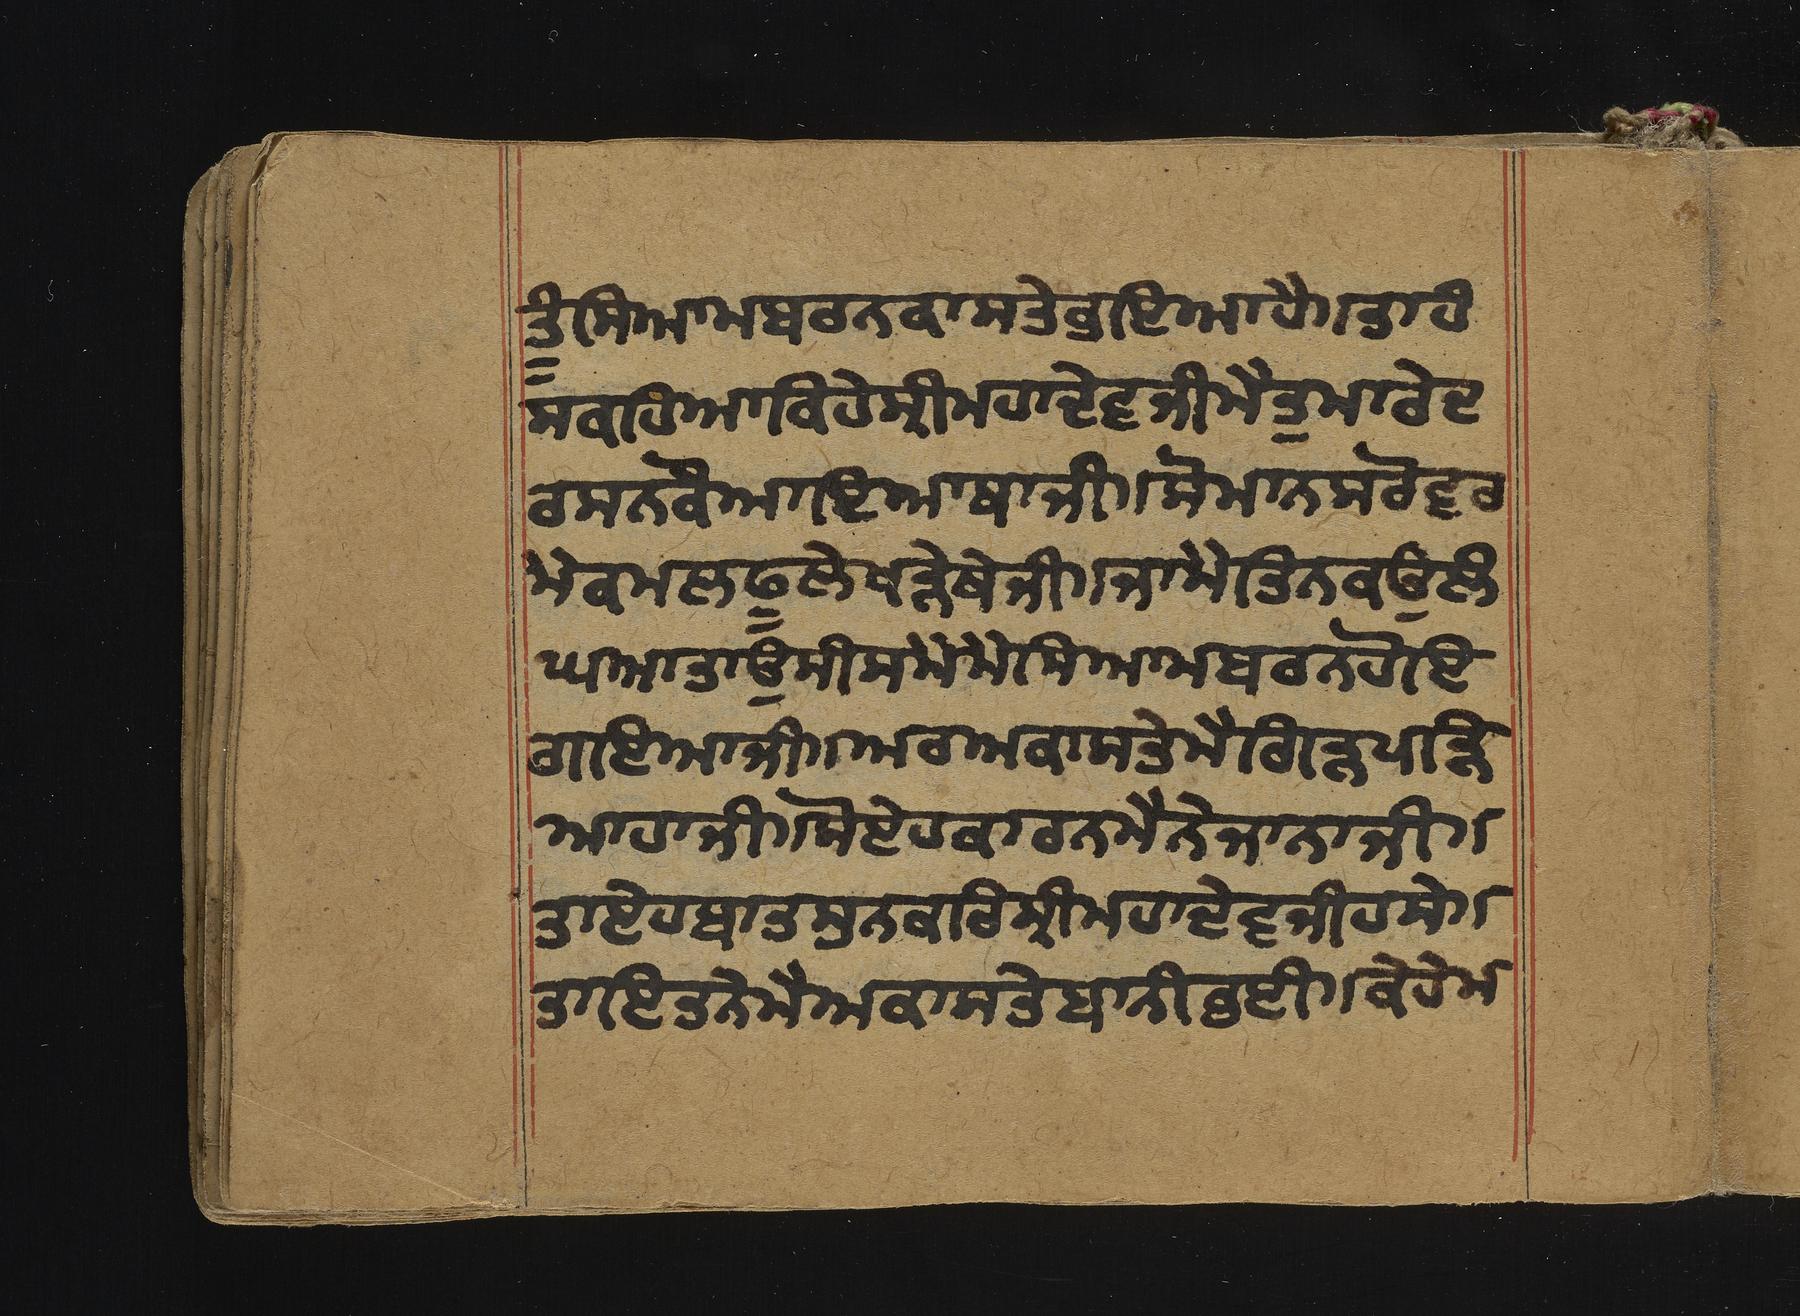 ਤੂੰਸਿਆਮਬਰਨਕਾਸਤੇਕੁਾਇਆਹੈ॥ਤਾਹੰ
ਸਕਹਿਆਕਿਹੇਸ੍ਰੀਮਹਾਦੇਵਜੀਮੈਤੁਮਾਰੇਦ
ਰਸਨਕੌਆਇਆਥਾਜੀ॥ਸੋਮਾਨਸਰੋਵਰ
ਮੇਕਮਲਫੂਲੇਖੜੇਥੇਜੀ॥ਜਾਮੈਤਿਨਕਉਲੰ
ਘਆਤਾਉਸੀਸਮੇਮੇਸਿਆਮਬਰਨਹੋਇ
ਗਇਆਜੀ॥ਅਰਅਕਾਸਤੇਮੈਗਿੜਪੜਿ
ਆਹਾਜੀ॥ਸੋਏਹਕਾਰਨਮੈਨੇਜਾਨਾਜੀ॥
ਤਾਏਹਬਾਤਸੁਨਕਰਿਸ੍ਰੀਮਹਾਦੇਵਜੀਹਸੇ॥
ਤਾਇਤਨੇਮੈਅਕਾਸਤੇਬਾਨੀਭਈ॥ਕੇਹੇਮ